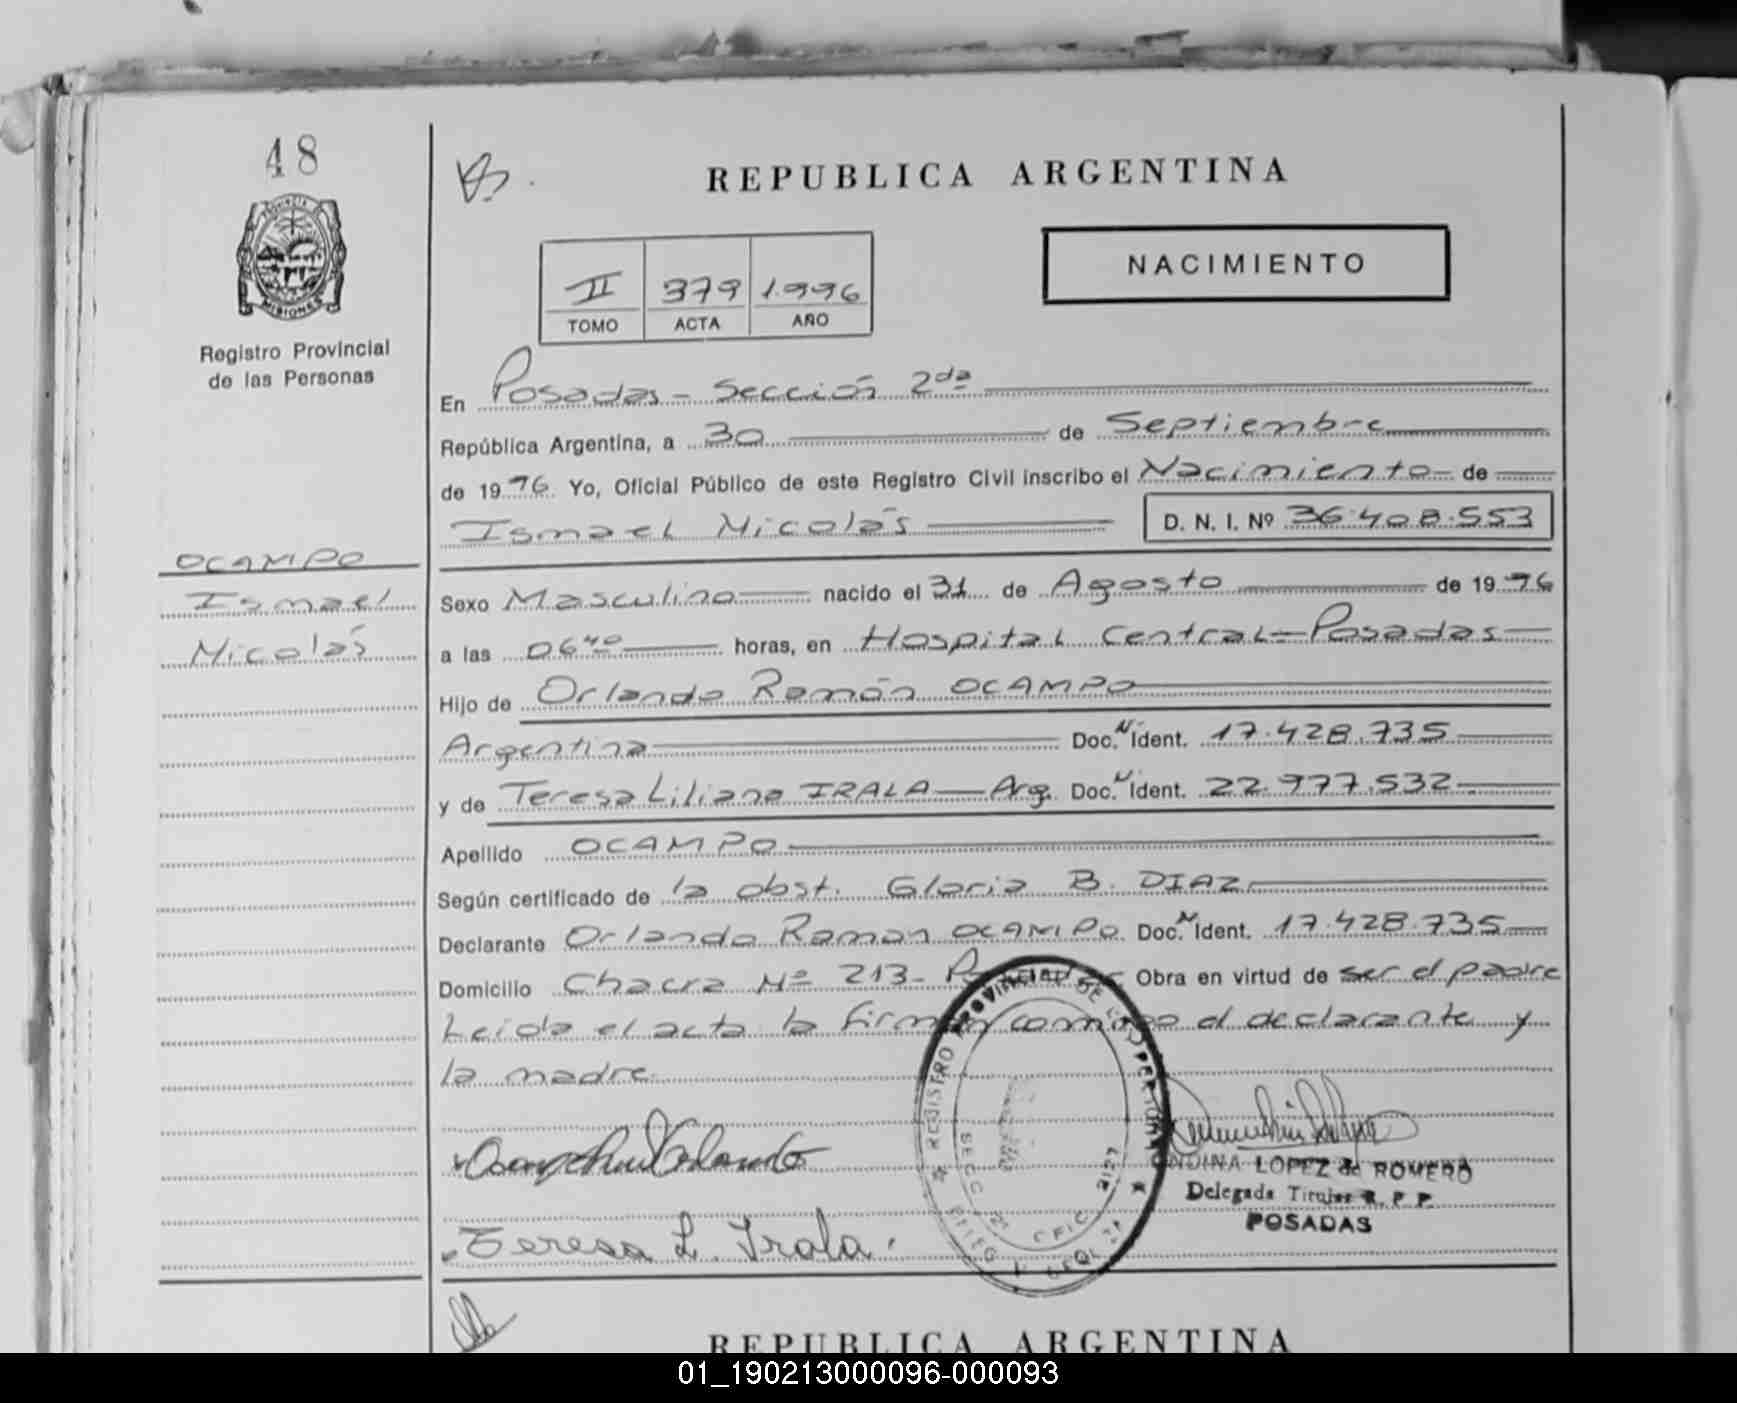 48
PROVINCIA
MISIONES
Registro Provincial
de las Personas
REPUBLICA ARGENTINA
NACIMIENTO
II 379 1.996
TOMO ACTA AÑO
En Posadas - Sección 2da
República Argentina, a 30 de Septiembre
de 1996. Yo, Oficial Público de este Registro Civil inscribo el Nacimiento de
Ismael Nicolás D. N. I. Nº 36.408.553
OCAMPO
Ismael
Nicolás
Sexo Masculino nacido el 31 de Agosto de 1996
a las 06⁴⁰ horas, en Hospital Central - Posadas
Hijo de Orlando Ramón OCAMPO
Argentina Doc. N Ident. 17.428.735
y de Teresa Liliana IRALA - Arg. Doc. N Ident. 22.977.532
Apellido OCAMPO
Según certificado de la obst. Gloria B. DIAZ
Declarante Orlando Ramon OCAMPO Doc. N Ident. 17.428.735
Domicilio Chacra Nº 213 - Obra en virtud de ser el padre
Leida el acta la firman conmigo el declarante y
la madre.
REGISTRO PROVINCIAL DE
SECC. 2ª
Teresa L. Irala.
LOPEZ de ROMERO
Delegada Titular R. P. P.
POSADAS
REPUBLICA ARGENTINA
01_190213000096-000093